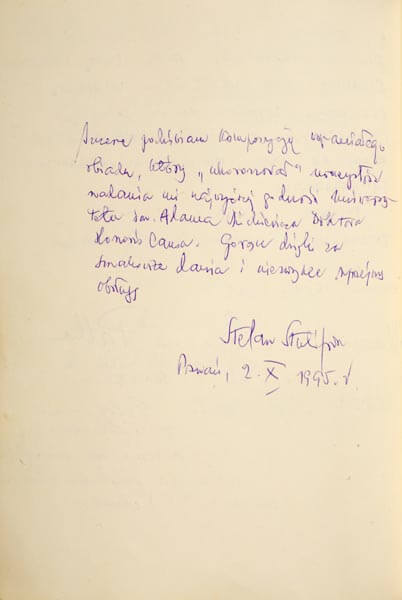 Szczerze podziwiam kompozycję wspaniałego
obiadu, który „ukoronował” uroczystość
nadania mi najwyższej godności Uniwersy-
tetu im. Adama Mickiewicza Doktora
Honoris Causa. Gorące dzięki za
smakowite dania i niezwykle uprzejmą
obsługę
Stefan Stuligrosz
Poznań, 2.X 1995.r